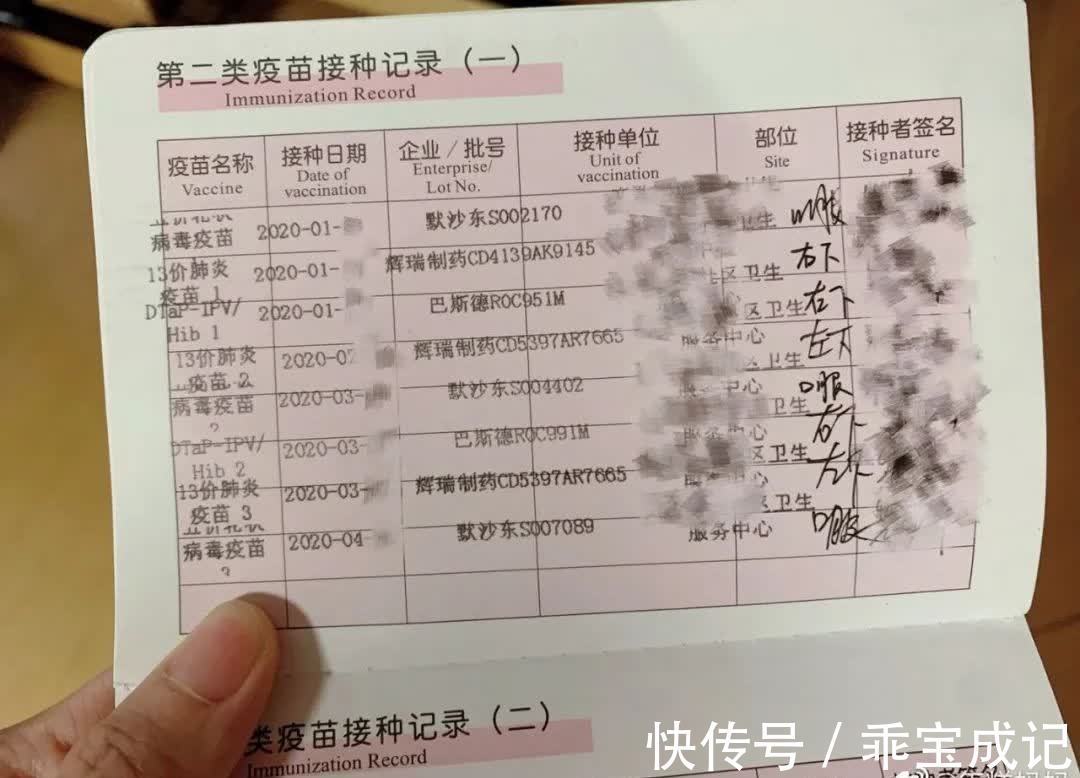 第二类疫苗接种记录（一）
Immunization Record
疫苗名称 接种日期 企业／批号 接种单位 部位 接种者签名
Vaccine Date of vaccination Enterprise/ Lot No. Unit of vaccination Site Signature
病毒疫苗 2020-01- 默沙东S002170 卫生 口服
13价肺炎疫苗 1 2020-01- 辉瑞制药CD4139AK9145 区卫生 右下
DTaP-IPV/Hib 1 2020-01- 巴斯德R0C951M 区卫生 左下
13价肺炎疫苗 2 2020-02 辉瑞制药CD5397AR7665 服务中心 卫生 左下
病毒疫苗 2020-03- 默沙东S004402 服务中心 卫生 口服
DTaP-IPV/Hib 2 2020-03- 巴斯德R0C991M 服务中心 区卫生 右下
13价肺炎疫苗 3 2020-03- 辉瑞制药CD5397AR7665 区卫生 左下
病毒疫苗 2020-04 默沙东S007089 服务中心 口服
类疫苗接种记录（二）
Immunization Record
快传号 / 乖宝成记